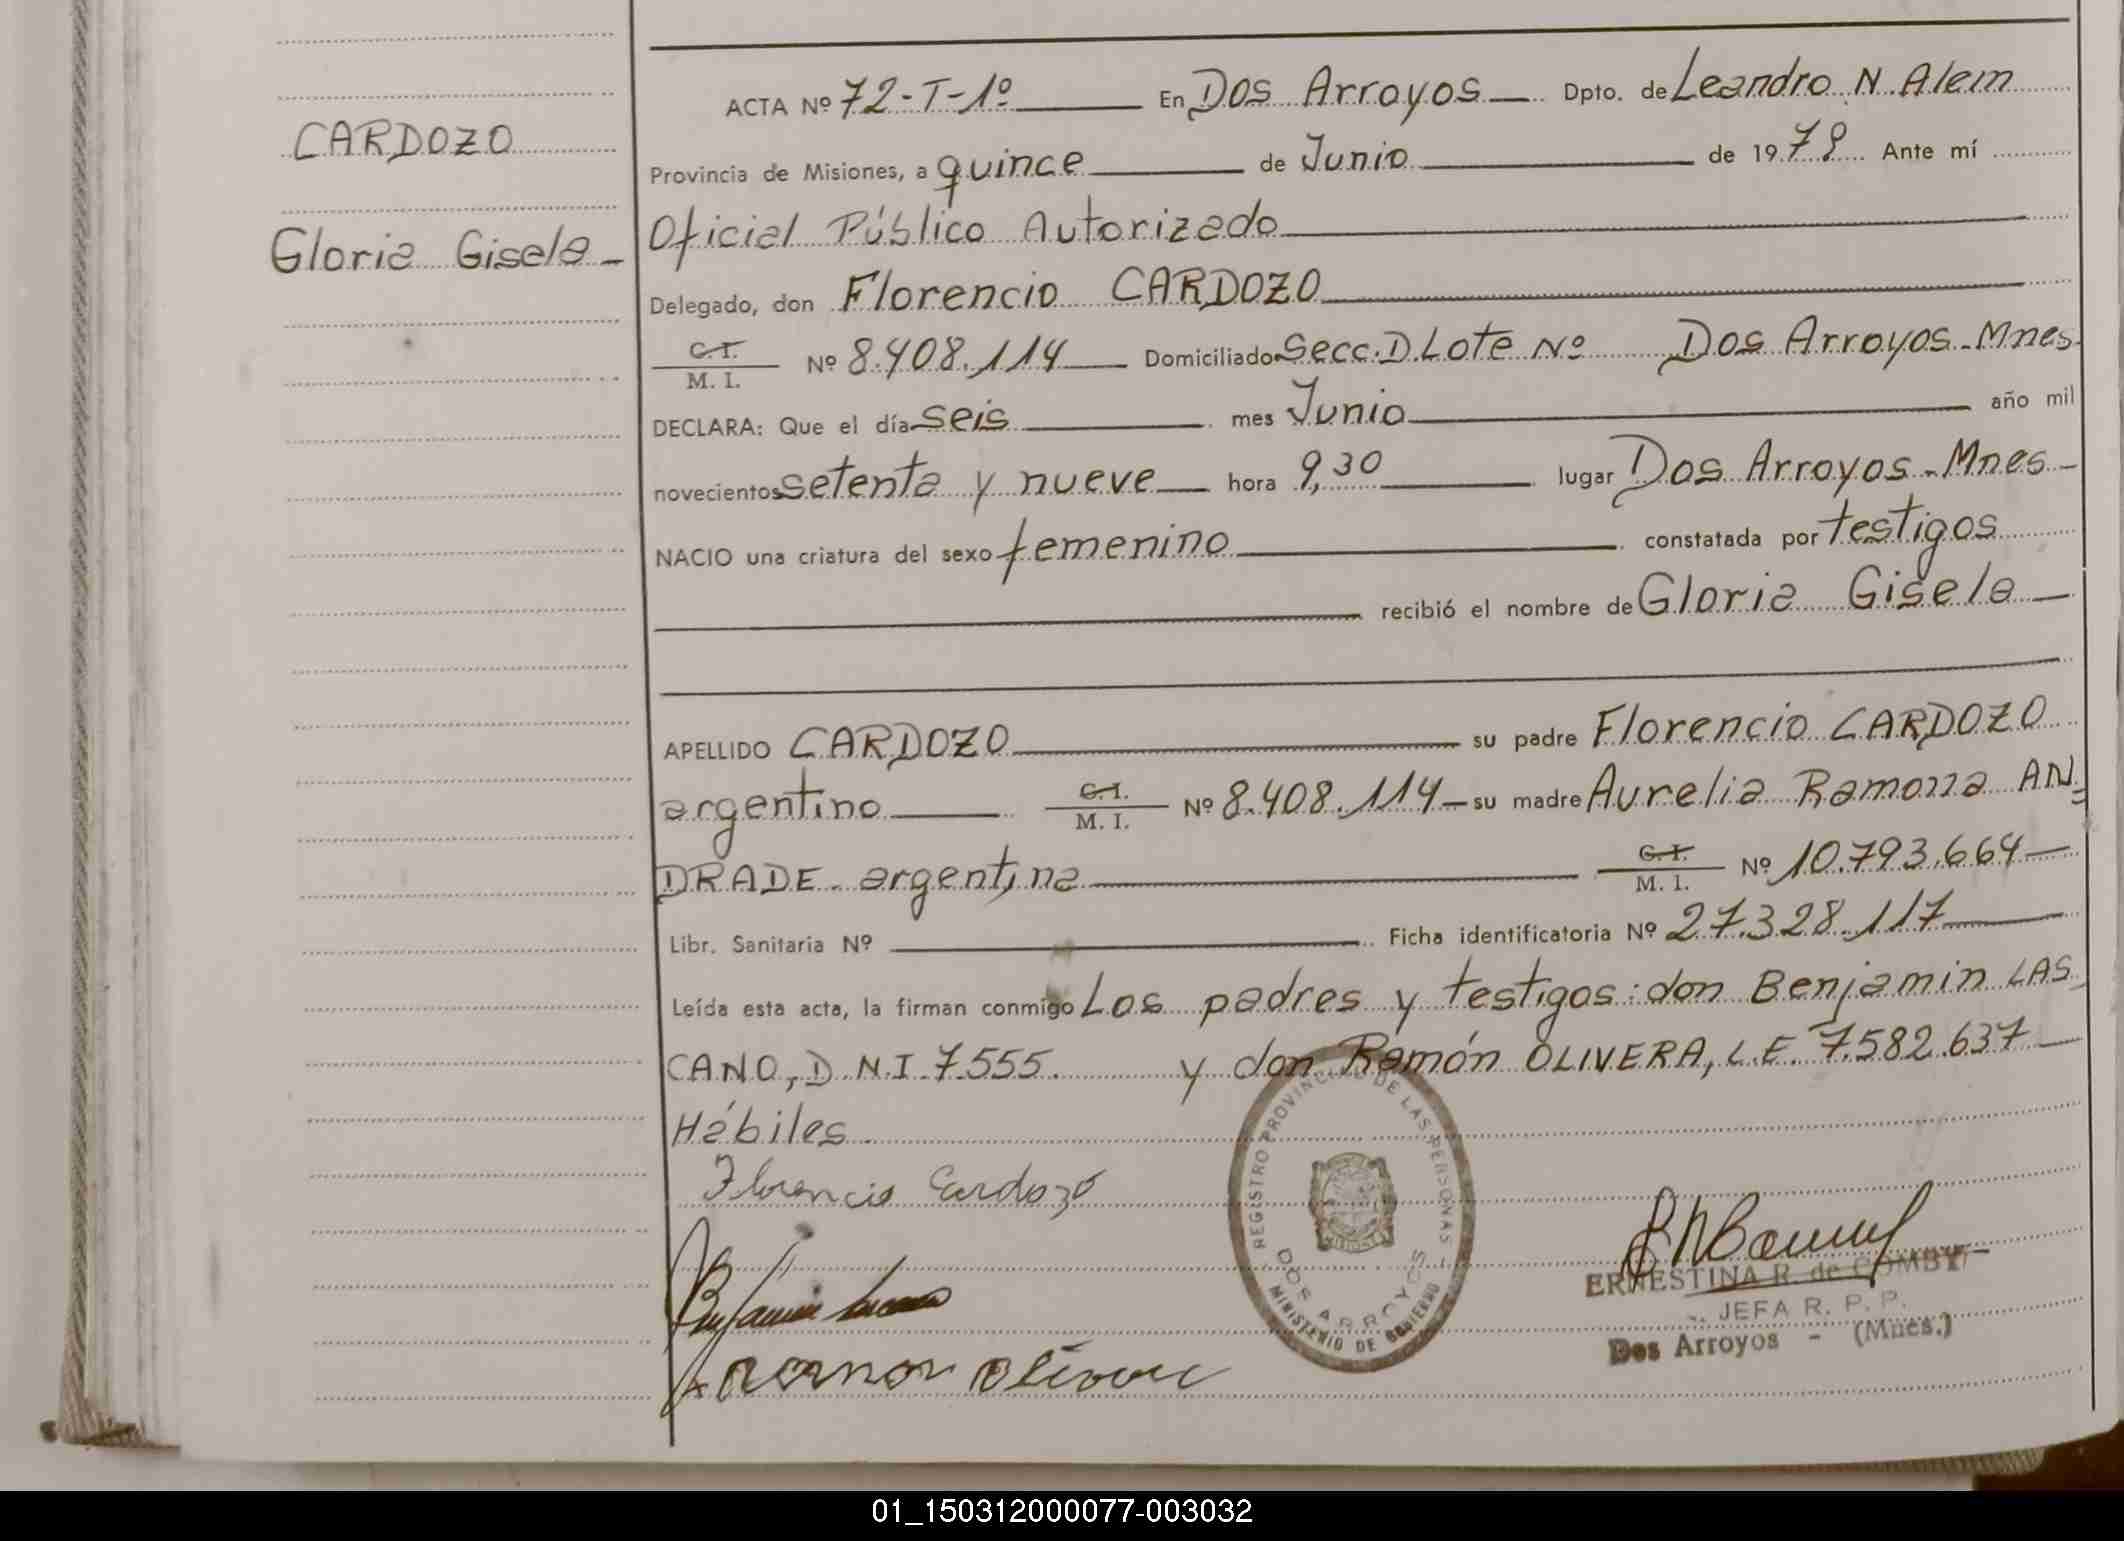 CARDOZO
Gloria Gisela -
ACTA Nº 72-T-1º En Dos Arroyos Dpto. de Leandro N Alem
Provincia de Misiones, a quince de Junio de 1979 Ante mí
Oficial Público Autorizado
Delegado, don Florencio CARDOZO
C.I.
M. I. Nº 8.408.114 Domiciliado Secc. D Lote Nº Dos Arroyos - Mnes
DECLARA: Que el día seis mes Junio año mil
novecientos setenta y nueve hora 9,30 lugar Dos Arroyos - Mnes -
NACIO una criatura del sexo femenino constatada por testigos
recibió el nombre de Gloria Gisela
APELLIDO CARDOZO su padre Florencio CARDOZO
argentino C.I. M. I. Nº 8.408.114 - su madre Aurelia Ramona AN=
DRADE - argentina C.I. M. I. Nº 10.793.664
Libr. Sanitaria Nº Ficha identificatoria Nº 27.328.117
Leída esta acta, la firman conmigo Los padres y testigos: don Benjamin LAS
CANO, D.N.I. 7.555. y don Ramón OLIVERA, L.E. 7.582.637
Hábiles.
Florencio Cardozo
Ramon Olivera
REGISTRO PROVINCIAL DE LAS PERSONAS
DOS ARROYOS
MINISTERIO DE GOBIERNO
ERNESTINA R. de COMBY
JEFA R. P. P.
Dos Arroyos - (Mnes.)
01_150312000077-003032